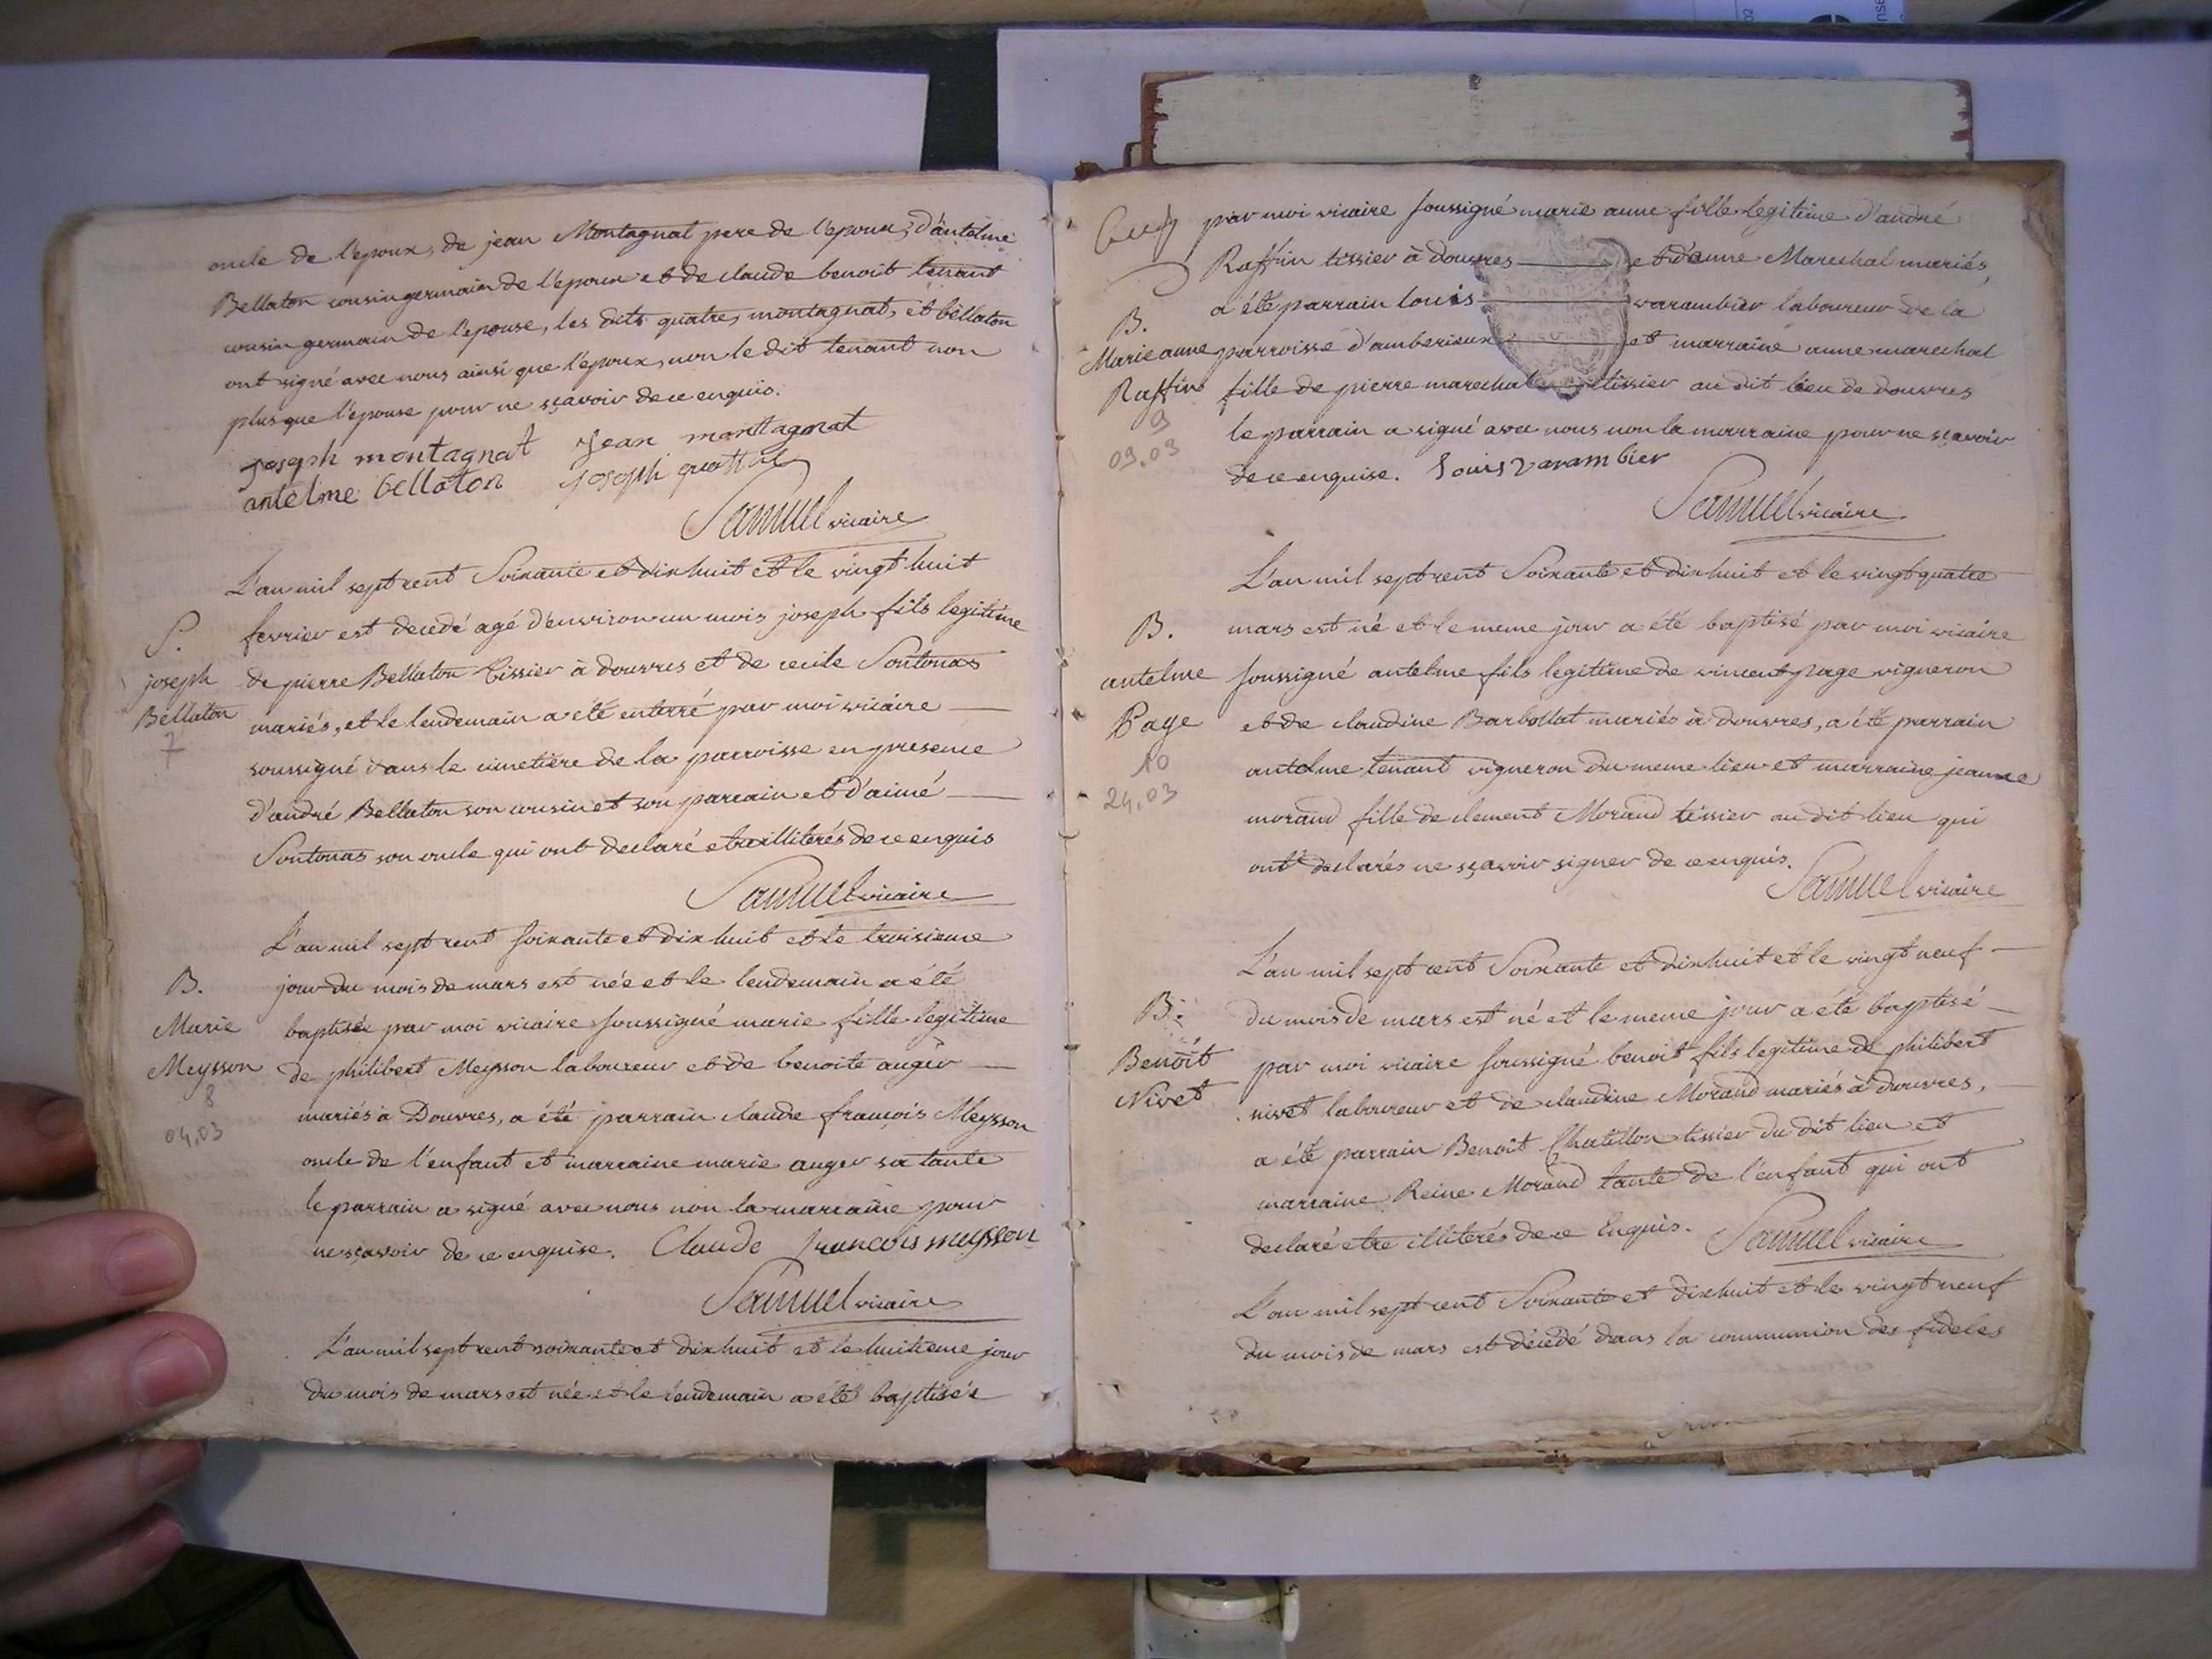 oncle de l'epoux, de jean Montagnat pere de l'epoux, d'antelme
Bellaton cousin germain de l'epoux et de claude benoit tenant
cousin germain de l'epouse, les dits quatre, montagnat, et bellaton
ont signé avec nous ainsi que l'époux, non le dit tenant non
plus que l'épouse pour ne sçavoir de ce enquis.
joseph montagnat jean montagnat
antelme bellaton joseph
Samuel vicaire
L'an mil sept cent Soixante et dix huit et le vingt huit
S.
joseph
Bellaton
7
fevrier est decedé agé d'environ un mois joseph fils legitime
de pierre Bellaton tissier à douvres et de cecile Sontonas
mariés, et le lendemain a été enterré par moi vicaire
soussigné dans le cimetière de la parroisse en presence
d'andré Bellaton son cousin et son parrain et d'aimé
Sontonas son oncle qui ont declaré etre illiterés de ce enquis
Samuel vicaire
L'an mil sept cent soixante et dix huit et le troisieme
B.
Marie
Meysson
8
04.03
jour du mois de mars est née et le lendemain a été
baptisée par moi vicaire soussigné marie fille legitime
de philibert Meysson laboureur et de benoite auger
mariés à Douvres, a été parrain claude françois Meysson
oncle de l'enfant et marraine marie auger sa tante
le parrain a signé avec nous non la marraine pour
ne sçavoir de ce enquise. Claude francois meysson
Samuel vicaire
L'an mil sept cent soixante et dix huit et le huitieme jour
du mois de mars est née et le lendemain a été baptisée
par moi vicaire soussigné marie anne fille legitime d'andré
Raffin tissier à douvres et d'anne Marechal mariés,
a été parrain louis varambier laboureur de la
B.
Marie anne
Raffin
9
09.03
parroisse d'amberieux et marraine anne marechal
fille de pierre marechal tissier au dit lieu de douvres
le parrain a signé avec nous non la marraine pour ne sçavoir
de ce enquise. Louis varambier
Samuel vicaire
L'an mil sept cent Soixante et dix huit et le vingt quatre
B.
antelme
Page
10
24.03
mars est né et le meme jour a été baptisé par moi vicaire
soussigné antelme fils legitime de vincent page vigneron
et de claudine Barbollat mariés à douvres, a été parrain
antelme tenant vigneron du meme lieu et marraine jeanne
morand fille de clement Morand tissier au dit lieu qui
ont declarés ne sçavoir signer de ce enquis.
Samuel vicaire
L'an mil sept cent Soixante et dix huit et le vingt neuf
B.
Benoît
Nivet
du mois de mars est né et le meme jour a été baptisé
par moi vicaire soussigné benoit fils legitime de philibert
nivet laboureur et de claudine Morand mariés à douvres,
a été parrain Benoit Chatillon tissier du dit lieu et
marraine Reine Morand tante de l'enfant qui ont
declaré etre illiterés de ce Enquis. Samuel vicaire
L'an mil sept cent Soixante et dix huit et le vingt neuf
du mois de mars est décédé dans la communion des fideles